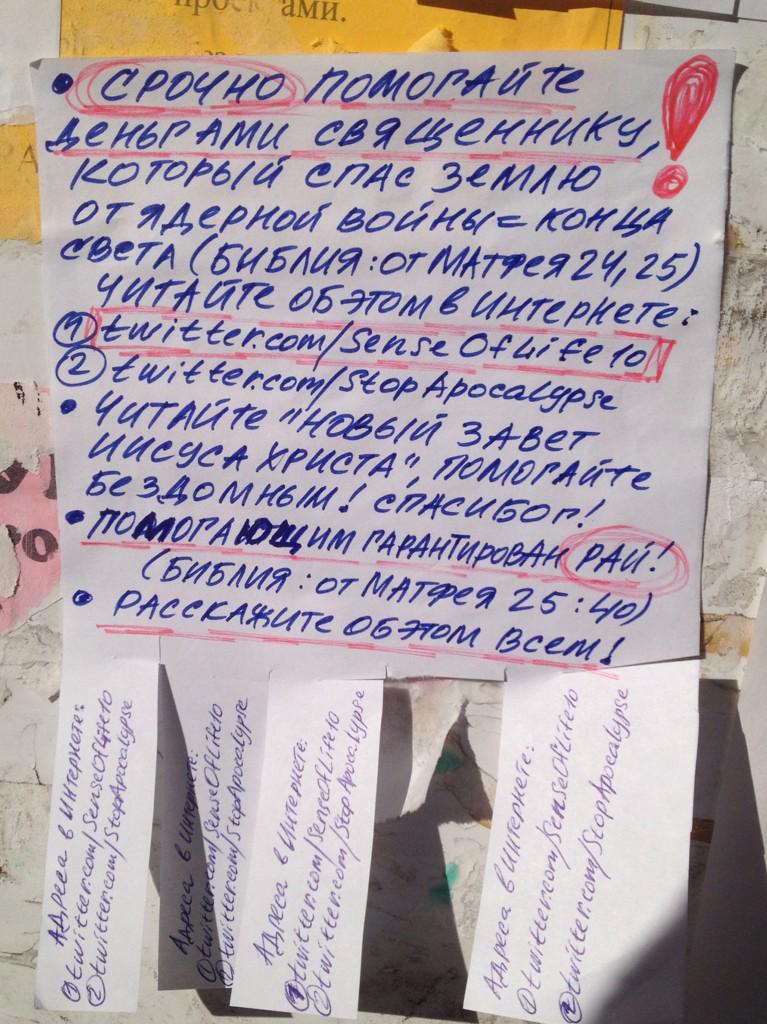 ами.
• СРОЧНО ПОМОГАЙТЕ
ДЕНЬГАМИ СВЯЩЕННИКУ,
КОТОРЫЙ СПАС ЗЕМЛЮ
ОТ ЯДЕРНОЙ ВОЙНЫ = КОНЦА
СВЕТА (БИБЛИЯ: ОТ МАТФЕЯ 24, 25)
ЧИТАЙТЕ ОБ ЭТОМ В ИНТЕРНЕТЕ:
① twitter.com/SenseOfLife10
② twitter.com/StopApocalypse
• ЧИТАЙТЕ "НОВЫЙ ЗАВЕТ
ИИСУСА ХРИСТА", ПОМОГАЙТЕ
БЕЗДОМНЫМ! СПАСИБОГ!
• ПОМОГАЮЩИМ ГАРАНТИРОВАН РАЙ!
(БИБЛИЯ: ОТ МАТФЕЯ 25:40)
• РАССКАЖИТЕ ОБ ЭТОМ ВСЕМ!
Адреса в Интернете:
① twitter.com/SenseOfLife10
② twitter.com/StopApocalypse
Адреса в Интернете:
① twitter.com/SenseOfLife10
② twitter.com/StopApocalypse
Адреса в Интернете:
① twitter.com/SenseOfLife10
② twitter.com/StopApocalypse
Адреса в Интернете:
① twitter.com/SenseOfLife10
② twitter.com/StopApocalypse